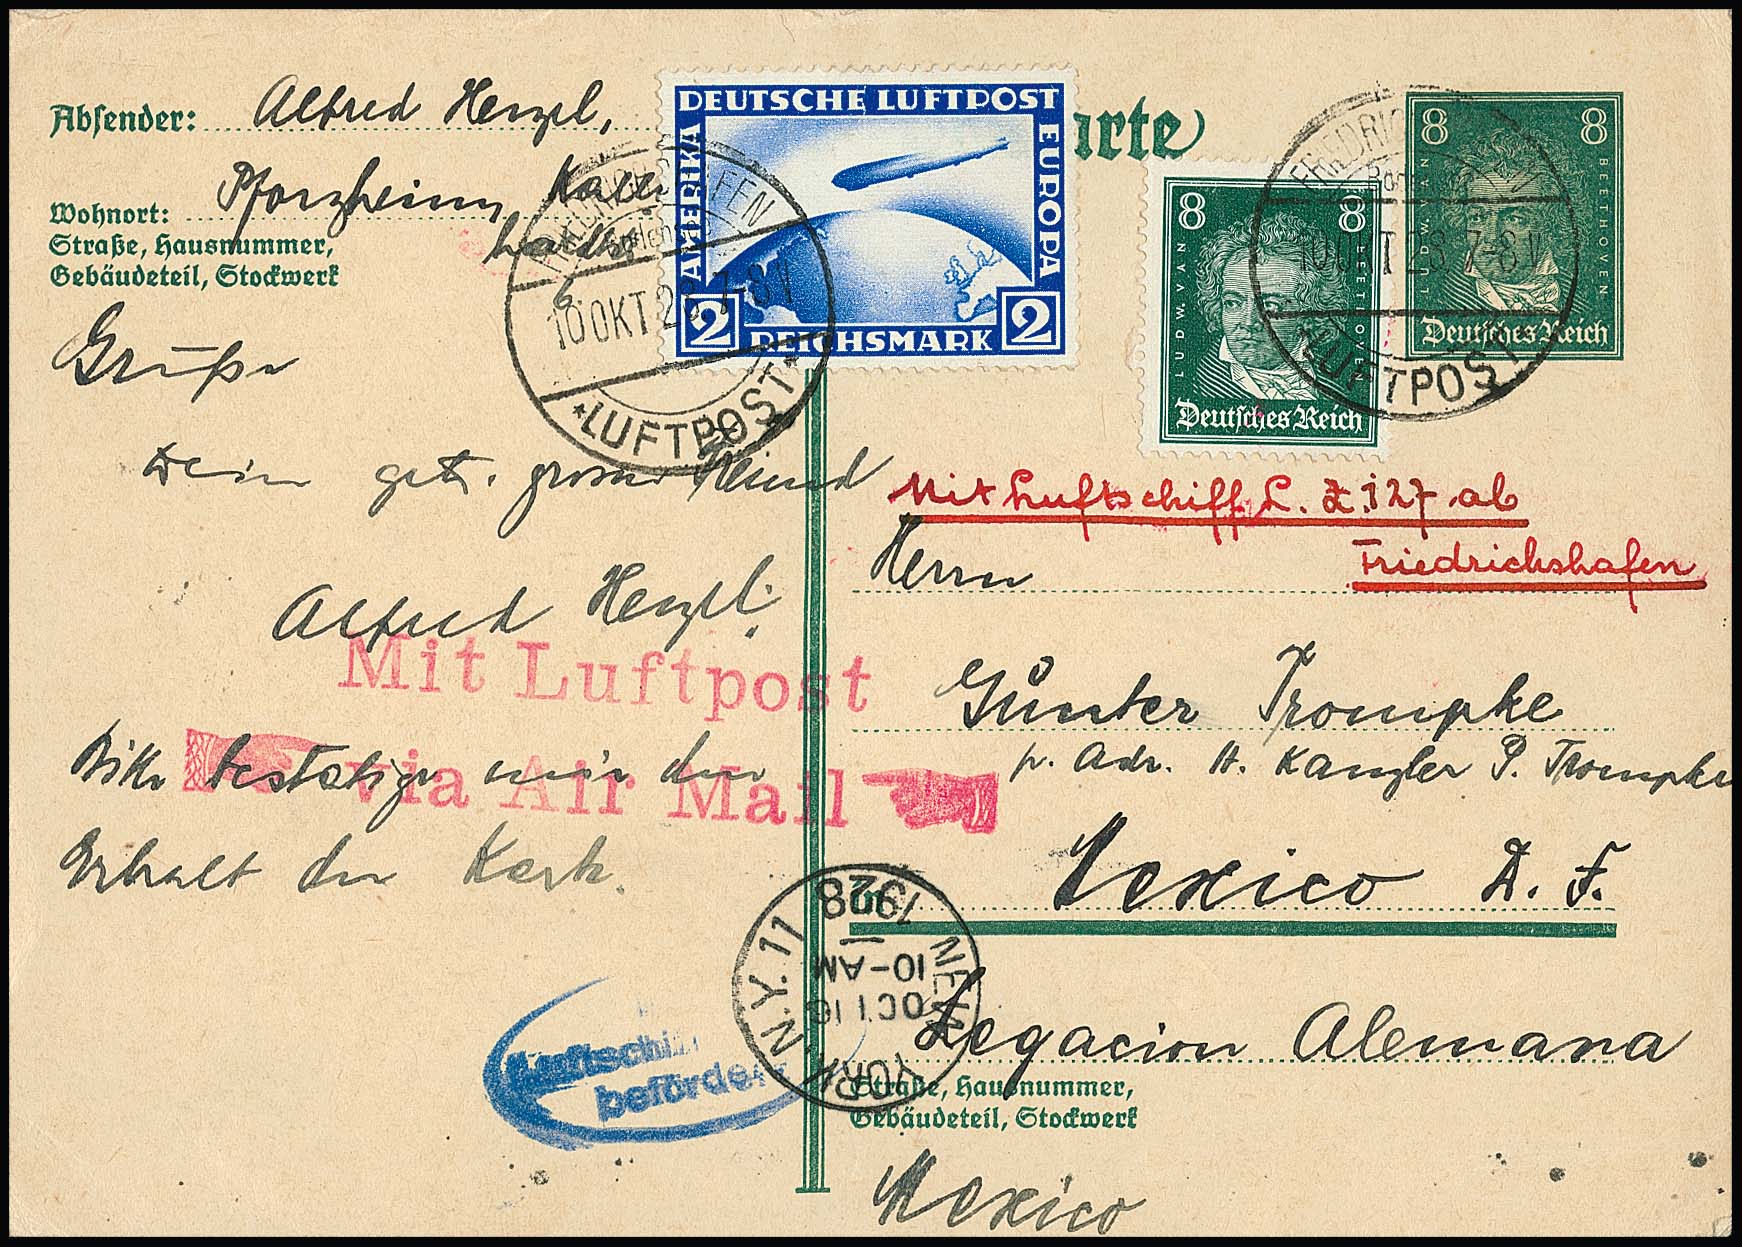 Absender: Alfred Henzel,
Wohnort: Pforzheim,
Straße, Hausnummer,
Gebäudeteil, Stockwerk
DEUTSCHE LUFTPOST
AMERIKA
EUROPA
2 REICHSMARK 2
arte
8 8
LUDW. VAN BEETHOVEN
Deutsches Reich
8 8
LUDW. VAN BEETHOVEN
Deutsches Reich
FRIEDRICHSHAFEN
10 OKT 28. 7-8 V
*LUFTPOST*
FRIEDRICHSHAFEN
10 OKT 28. 7-8 V
*LUFTPOST*
Grüße
Dein get. grosser Freund
Alfred Henzel.
Mit Luftpost
via Air Mail
Bitte bestätige mir den
Erhalt der Karte.
Mit Luftschiff L. Z. 127 ab
Friedrichshafen
Herrn
Günter Trompke
p. Adr. H. Kanzler P. Trompke
Mexico D. F.
Legacion Alemana
Straße, Hausnummer,
Gebäudeteil, Stockwerk
Mexico
NEW YORK N.Y. 11
OCT 16
10-AM
1928
Luftschiff
befördert